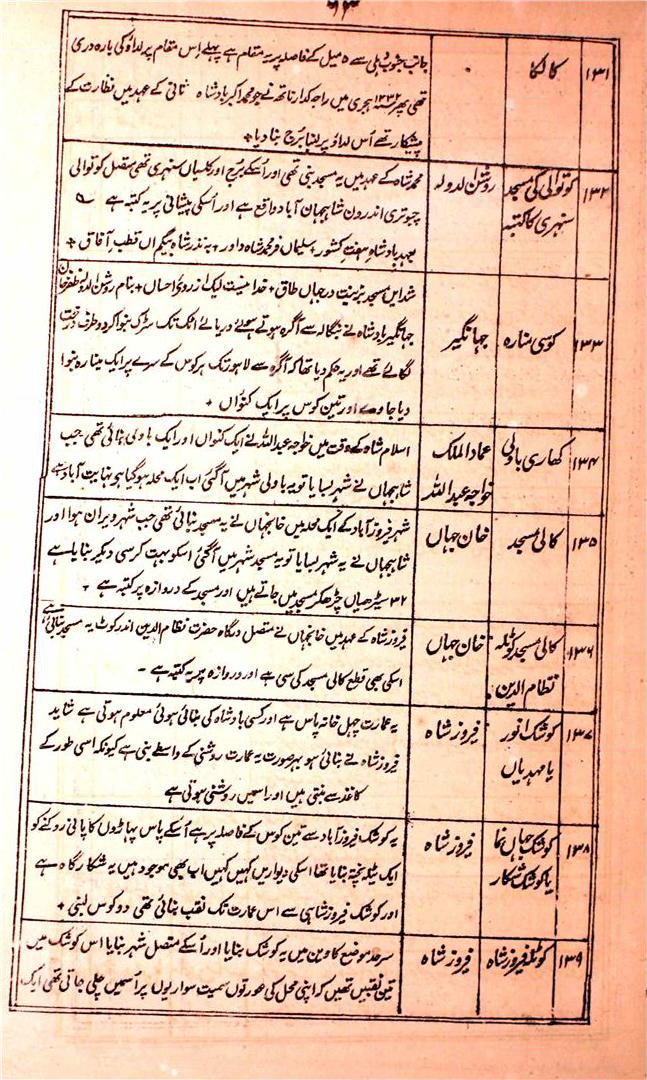 ۶۳
۱۳۱
کالکا
جانب جنوب دہلی سے ۵ میل کے فاصلہ پر یہ مقام ہے پہلے اس مقام پر لداؤ کی بارہ دری
تھی پھر ۱۲۳۲ ہجری میں راجہ کدارناتھ نے جو محمد اکبر بادشاہ ثانی کے عہد میں نظارت کے
پیشکار تھے اُس لداؤ پر لنبا بُرج بنا دیا +
۱۳۲
کوتوالی کی مسجد
سنہری کا کتبہ
روشن الدولہ
محمد شاہ کے عہد میں یہ مسجد بنی تھی اور اُسکے بُرج اور کلسیاں سنہری تھی متصل کوتوالی
چبوتری اندرون شاہجہان آباد واقع ہے اور اُسکی پیشانی پر یہ کتبہ ہے
بعہد بادشاہ ہفت کشور + سلیماں فر محمد شاہ داور + بہ نذر شاہ بیگم اں قطب آفاق +
شد ایں مسجد بزینت در جہاں طاق + خدا منیست لیک از روی احساں + بنام روشن الدولہ ظفر خان
۱۳۳
کوسی منارہ
جہانگیر
جہانگیر بادشاہ نے بنگالہ سے آگرہ ہوتے ہوئے دریائے اٹک تک سڑک بنوا کر دو طرفہ درخت
لگائے تھے اور یہ حکم دیا تھا کہ آگرہ سے لاہور تک ہر کوس کے سرے پر ایک مینارہ بنوا
دیا جاوے اور تین کوس پر ایک کنواں +
۱۳۴
کھاری باولی
عماد الملک
خواجہ عبد اللہ
اسلام شاہ کے وقت میں خواجہ عبد اللہ نے ایک کنواں اور ایک باولی بنائی تھی جب
شاہجہاں نے شہر بسایا تو یہ باولی شہر میں آگئی اب ایک محلہ ہوگیا ہی نہایت آباد ہے
۱۳۵
کالی مسجد
خان جہاں
شہر فیروزآباد کے ایک محلہ میں خانجہاں نے یہ مسجد بنائی تھی جب شہر ویران ہوا اور
شاہجہاں نے یہ شہر بسایا تو یہ مسجد شہر میں آگئی اسکو بہت کرسی دیکر بنایا ہے
۳۲ سیڑھیاں چڑھکر مسجد میں جاتے ہیں اور مسجد کے دروازہ پر کتبہ ہے +
۱۳۶
کالی مسجد کوٹلہ
نظام الدین
خان جہاں
فیروز شاہ کے عہد میں خانجہاں نے متصل درگاہ حضرت نظام الدین اندر کوٹ یہ مسجد بنائی ہے
اسکی بھی قطع کالی مسجد کی سی ہے اور دروازہ پر یہ کتبہ ہے -
۱۳۷
کوشک انور
یا مہدیاں
فیروز شاہ
یہ عمارت جیل خانہ پاس ہے اور کسی بادشاہ کی بنائی ہوئی معلوم ہوتی ہے شاید
فیروز شاہ نے بنائی ہو بہر صورت یہ عمارت روشنی کے واسطے بنی ہے کیونکہ اسی طور کے
کاغذ سے بنتی ہیں اور اسمیں روشنی ہوتی ہے
۱۳۸
کوشک جہاں نما
یا کوشک شکار
فیروز شاہ
یہ کوشک فیروزآباد سے تین کوس کے فاصلہ پر ہے اُسکے پاس پہاڑوں کا پانی روکنے کو
ایک ٹیلہ پختہ بنایا تھا اسکی دیواریں کہیں کہیں اب بھی موجود ہیں یہ شکارگاہ ہے
اور کوشک فیروز شاہی سے اس عمارت تک نقب بنائی تھی دو کوس لنبی +
۱۳۹
کوٹلہ فیروز شاہ
فیروز شاہ
سرحد موضع کاوین میں یہ کوشک بنایا اور اُسکے متصل شہر بنایا اس کوشک میں
تین نقبیں تھیں کہ اپنی محل کی عورتوں سمیت سواریوں پر اُسمیں چلی جاتی تھی ایک